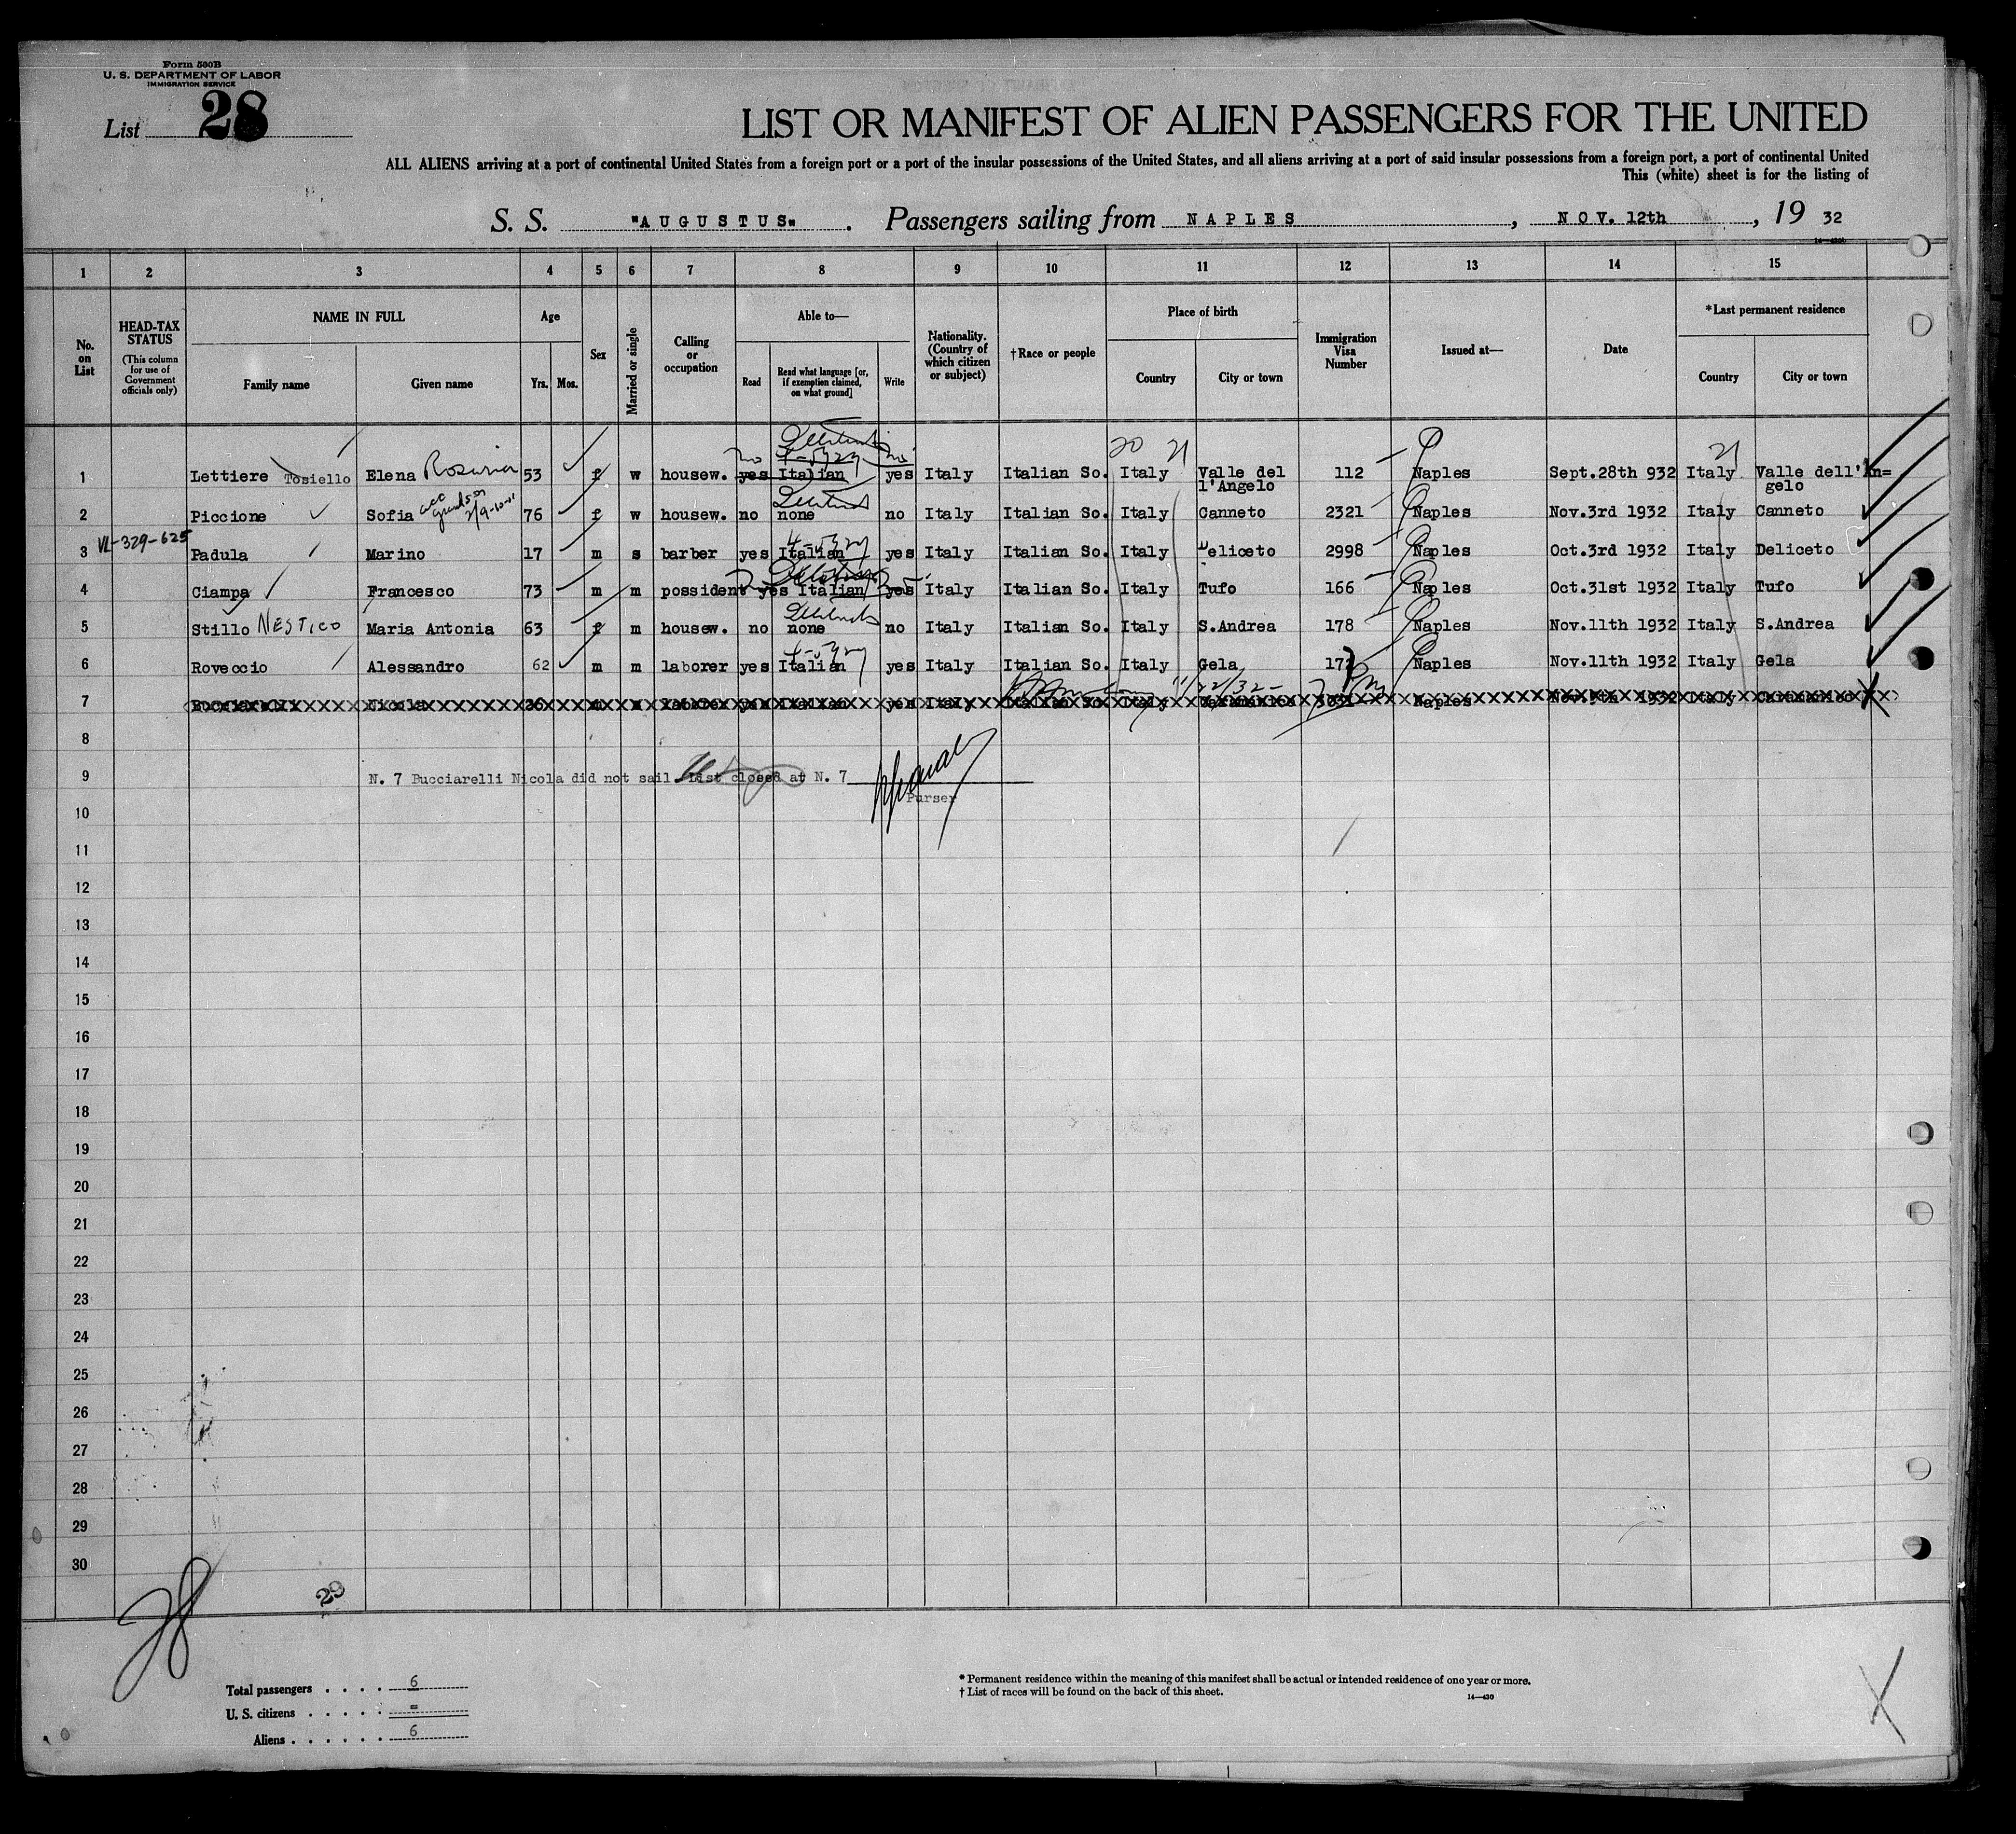 Form 500B
U. S. DEPARTMENT OF LABOR
IMMIGRATION SERVICE
List 28
LIST OR MANIFEST OF ALIEN PASSENGERS FOR THE UNITED
ALL ALIENS arriving at a port of continental United States from a foreign port or a port of the insular possessions of the United States, and all aliens arriving at a port of said insular possessions from a foreign port, a port of continental United
This (white) sheet is for the listing of
S. S. "AUGUSTUS". Passengers sailing from NAPLES, NOV. 12th, 19 32
1 2 3 4 5 6 7 8 9 10 11 12 13 14 15
No. on List
HEAD-TAX STATUS
(This column for use of Government officials only)
NAME IN FULL
Family name
Given name
Age
Yrs. Mos.
Sex
Married or single
Calling or occupation
Able to—
Read
Read what language [or, if exemption claimed, on what ground]
Write
Nationality. (Country of which citizen or subject)
†Race or people
Place of birth
Country
City or town
Immigration Visa Number
Issued at—
Date
*Last permanent residence
Country
City or town
20 21 21
1 Lettiere Tosiello Elena Rosaria 53 f w housew. yes Italian yes no Italy Italian So. Italy Valle del l'Angelo 112 Naples Sept.28th 932 Italy Valle dell'An= gelo
2 Piccione Sofia 76 f w housew. no none no Italy Italian So. Italy Canneto 2321 Naples Nov.3rd 1932 Italy Canneto
VL-329-625
3 Padula Marino 17 m s barber yes Italian yes Italy Italian So. Italy Deliceto 2998 Naples Oct.3rd 1932 Italy Deliceto
4 Ciampa Francesco 73 m m possident yes Italian yes Italy Italian So. Italy Tufo 166 Naples Oct.31st 1932 Italy Tufo
5 Stillo NESTICO Maria Antonia 63 f m housew. no none no Italy Italian So. Italy S.Andrea 178 Naples Nov.11th 1932 Italy S.Andrea
6 Roveccio Alessandro 62 m m laborer yes Italian yes Italy Italian So. Italy Gela 172 Naples Nov.11th 1932 Italy Gela
11/22/32-
7 Bucciarelli Nicola 26 m laborer yes Italian yes Italy Italian So. Italy Naples 1932 Italy
8
9 N. 7 Bucciarelli Nicola did not sail List closed at N. 7
Purser
10
11
12
13
14
15
16
17
18
19
20
21
22
23
24
25
26
27
28
29
30
28
29
Total passengers . . . . 6
U. S. citizens . . . . . =
Aliens . . . . . . 6
* Permanent residence within the meaning of this manifest shall be actual or intended residence of one year or more.
† List of races will be found on the back of this sheet.
14—430